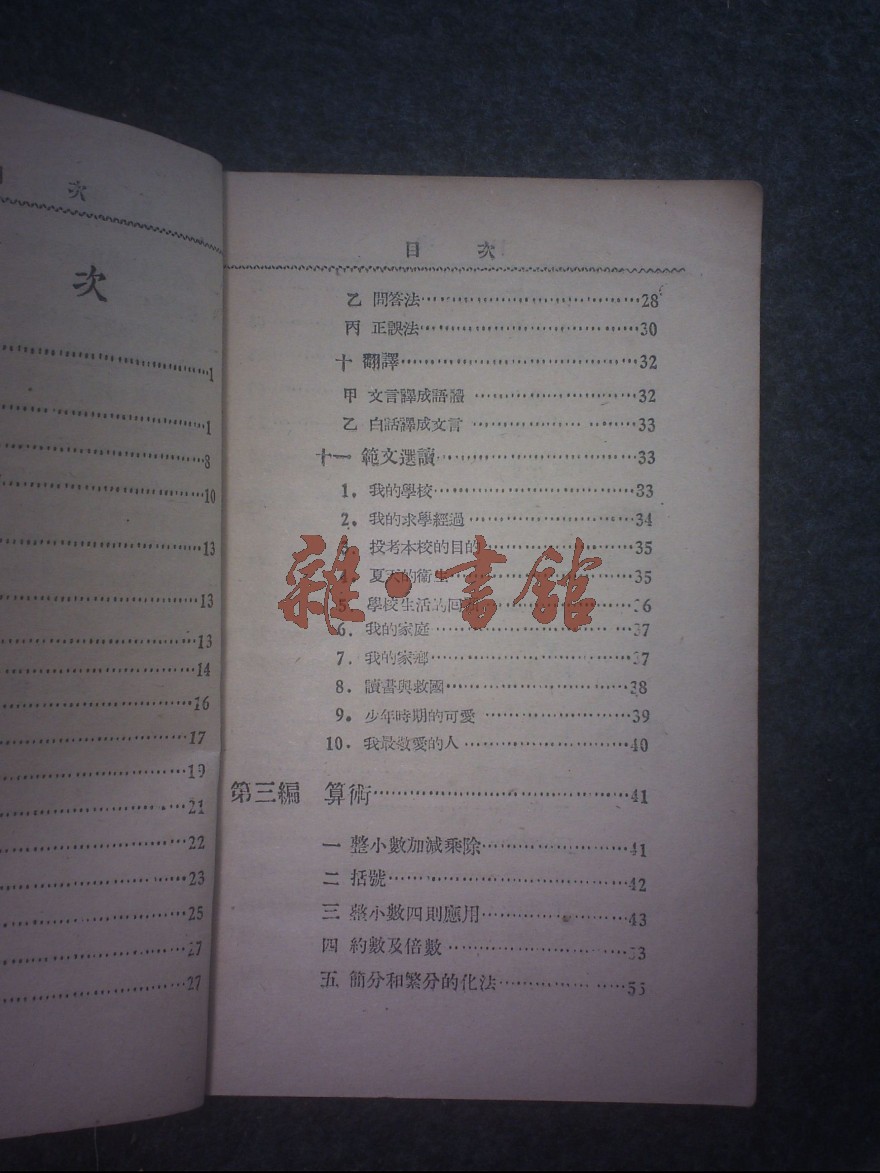 次
次
1
1
8
10
13
13
13
14
16
17
19
21
22
23
25
27
27
目 次
乙 問答法 28
丙 正誤法 30
十 翻譯 32
甲 文言譯成語體 32
乙 白話譯成文言 33
十一 範文選讀 33
1. 我的學校 33
2. 我的求學經過 34
3. 投考本校的目的 35
4. 夏天的衞生 35
5. 學校生活的回 36
6. 我的家庭 37
7. 我的家鄉 37
8. 讀書與救國 38
9. 少年時期的可愛 39
10. 我最敬愛的人 40
第三編 算術 41
一 整小數加減乘除 41
二 括號 42
三 整小數四則應用 43
四 約數及倍數 53
五 簡分和繁分的化法 55
雜·書館